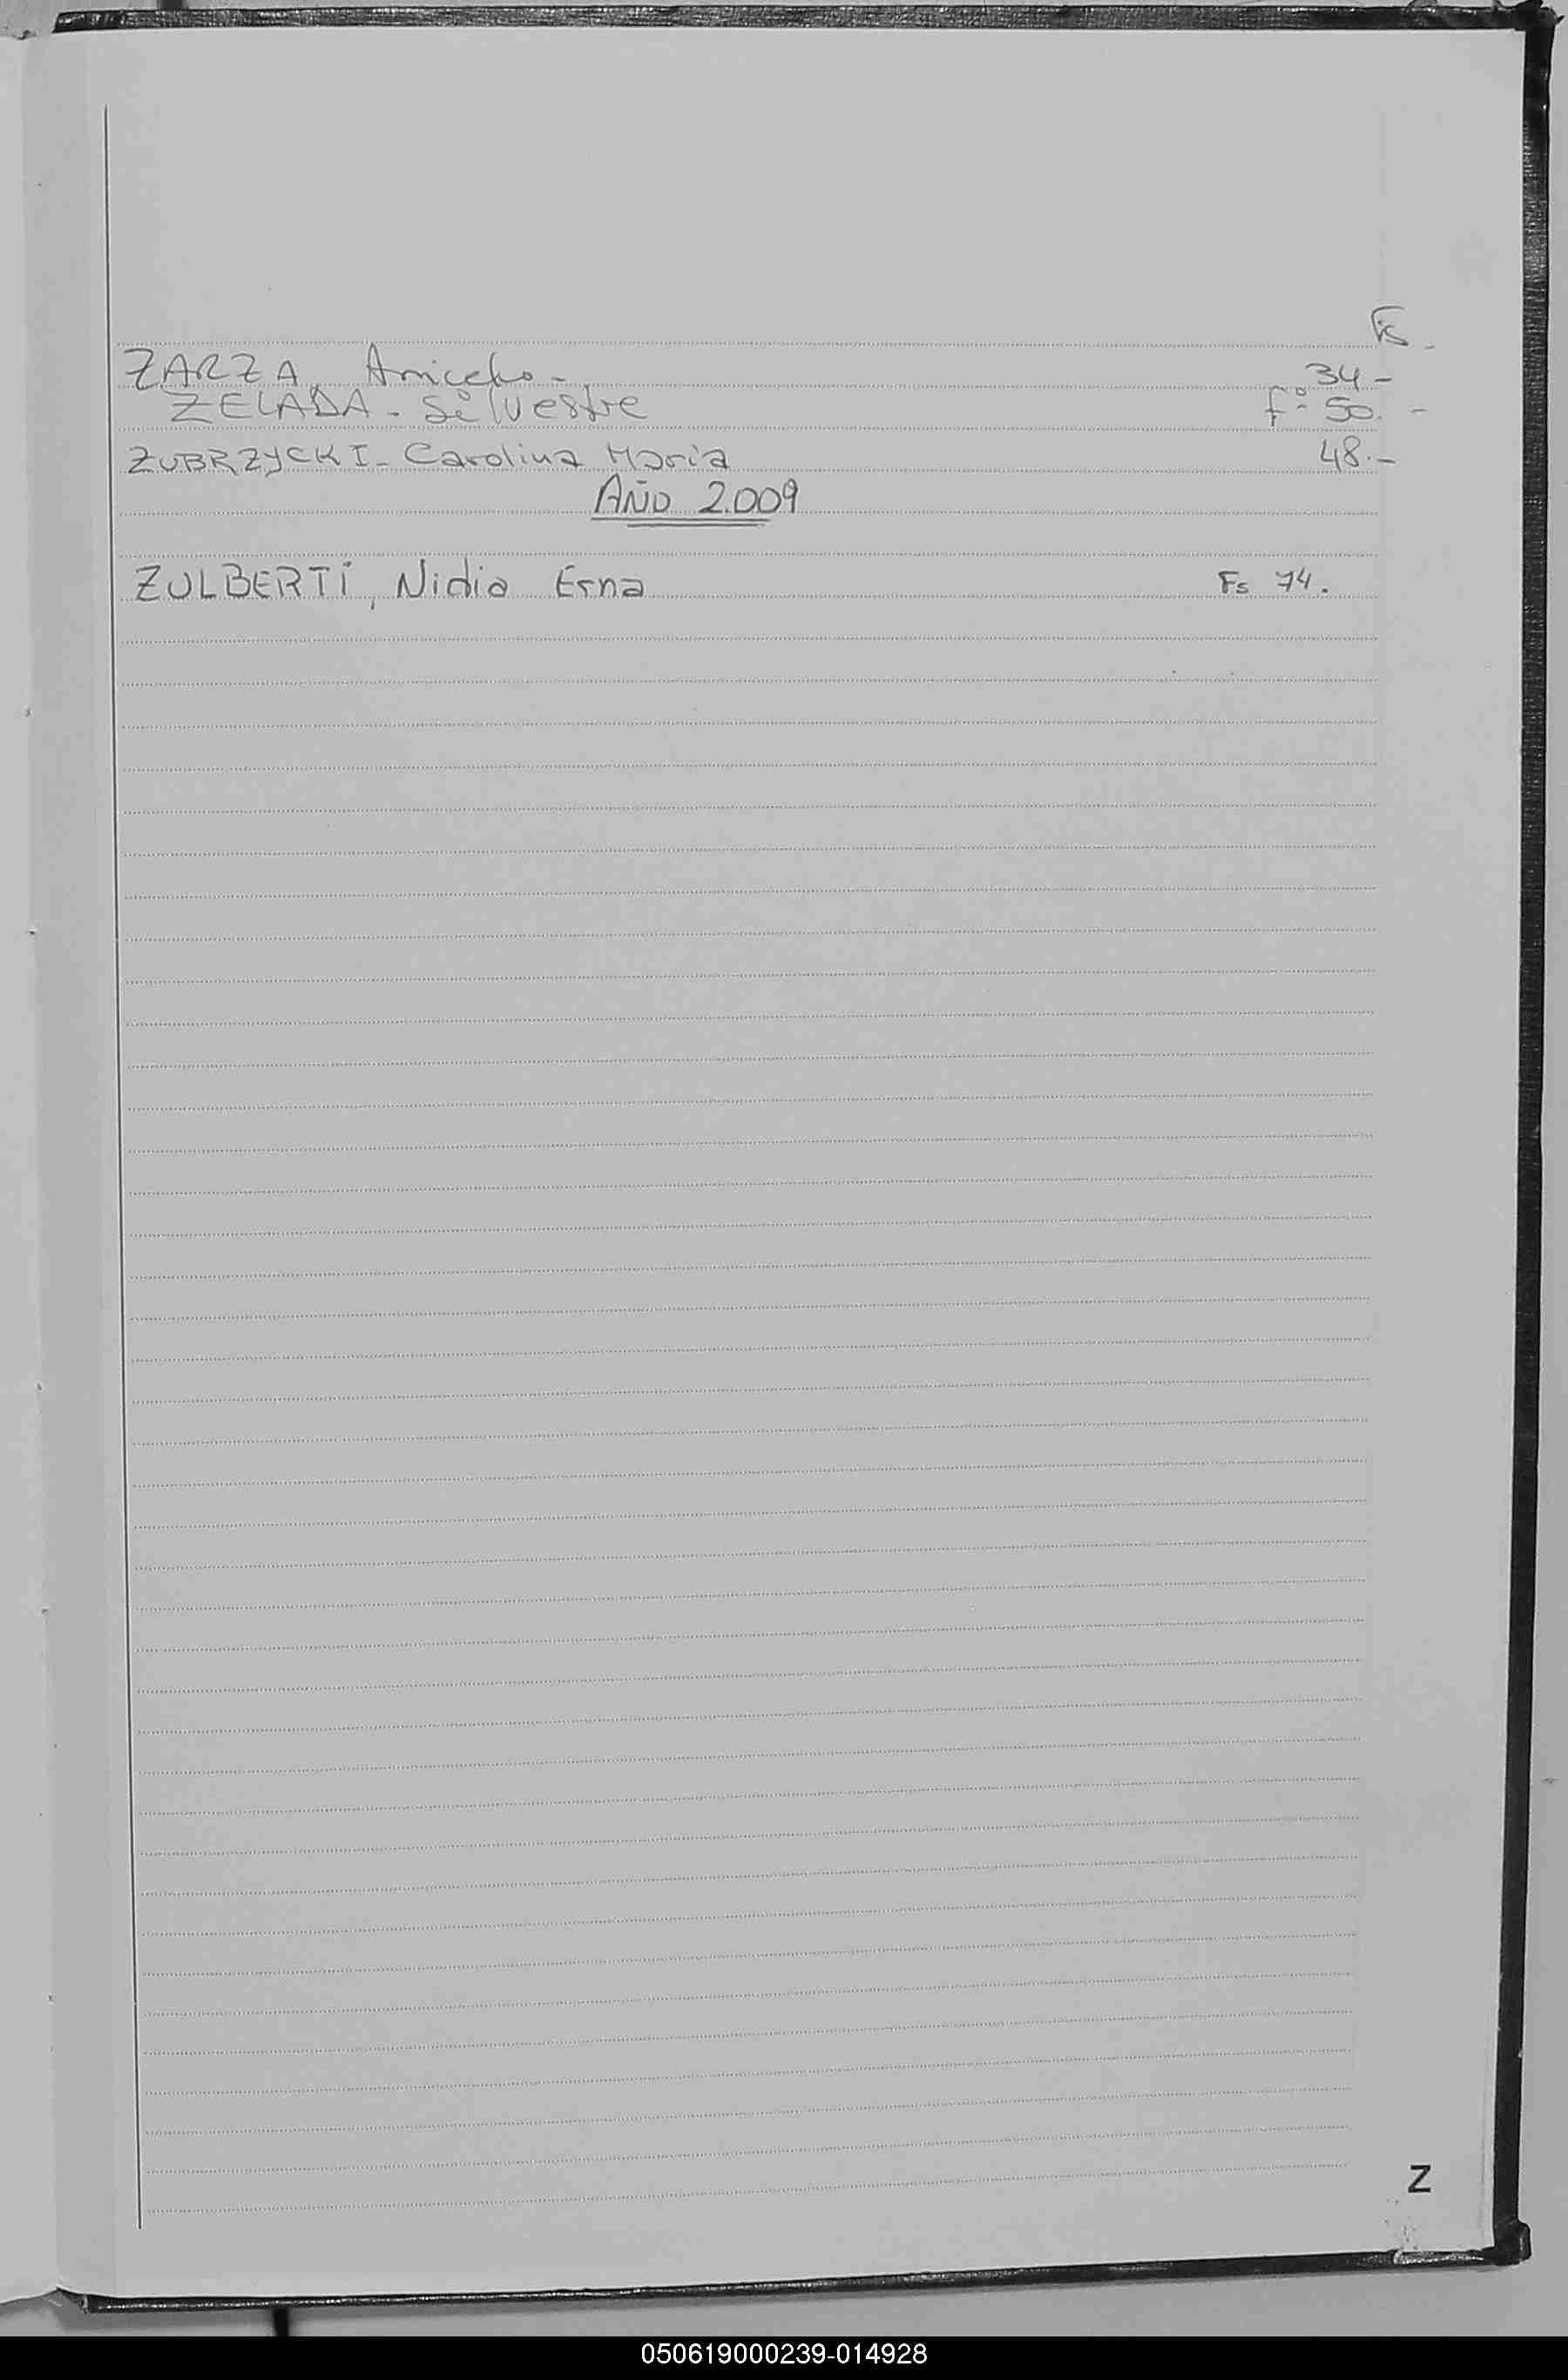 Fs -
ZARZA, Aniceto - 34 -
ZELADA - Silvestre fº: 50. -
ZUBRZYCKI - Carolina Maria 48. -
AÑO 2.009
ZULBERTI, Nidia Erna Fs 74.
Z
050619000239-014928